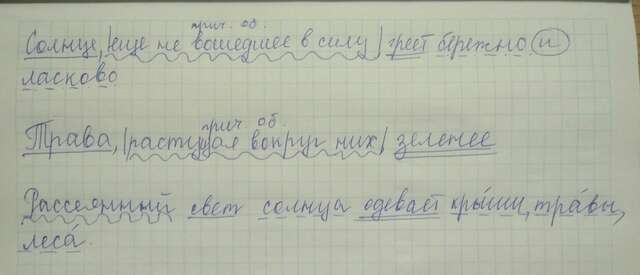 прич. об.
Солнце, |еще не вошедшее в силу| греет бережно и
ласково
прич об.
Трава, |растущая вокруг них| зеленее
Рассеянный свет солнца одевает кры́ши, тра́вы,
леса́.